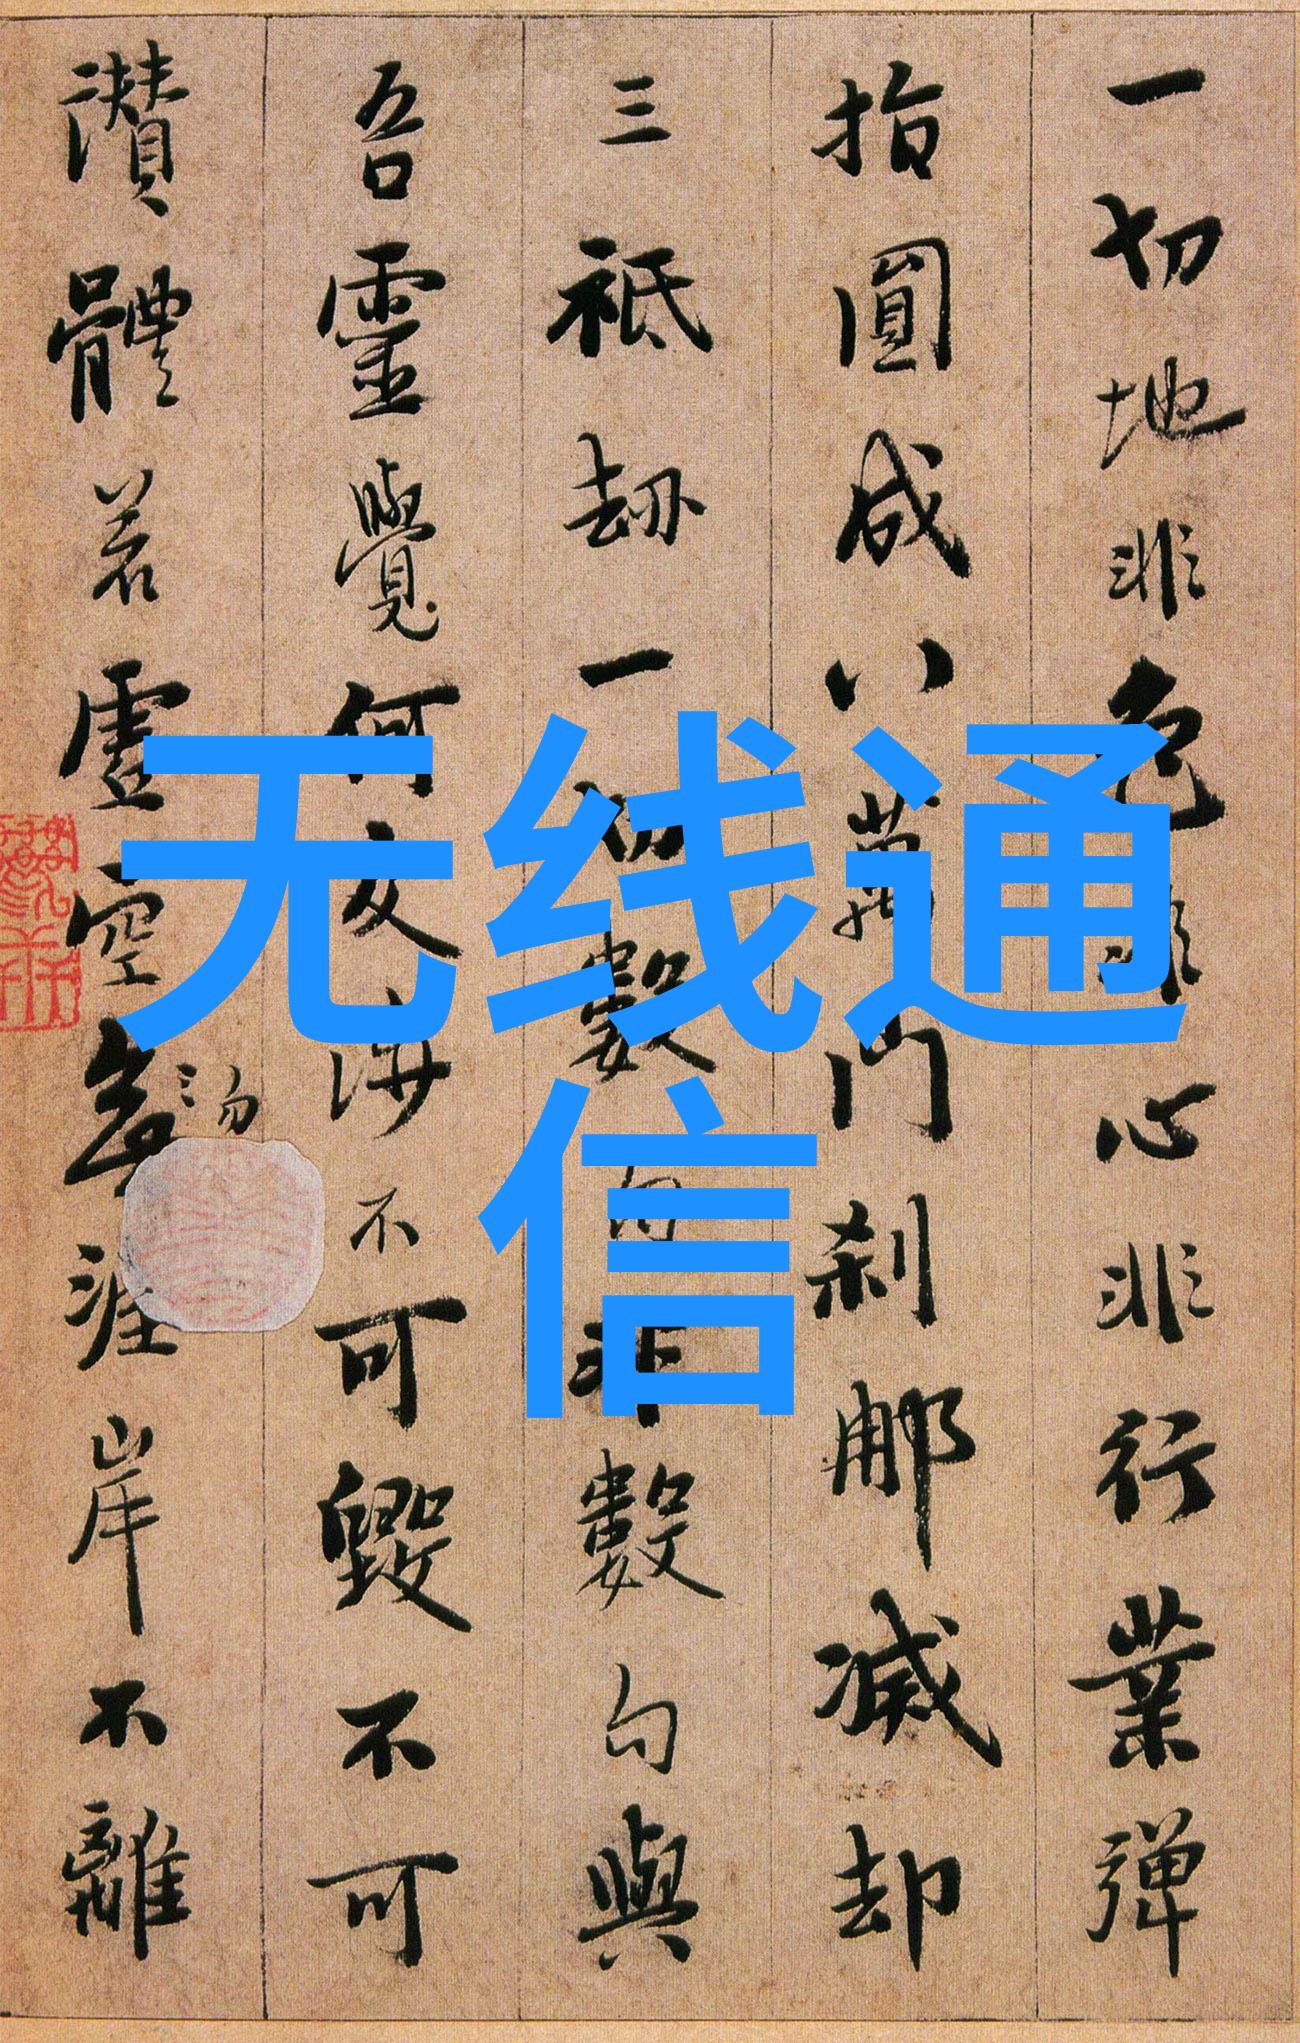 一切地非色非心非行業彈
指圓成八萬門刹那滅却
三祇劫一切數句非數句與
吾靈覺何交涉不可毀不可
讚體若虛空無涯岸不離
无线通
信